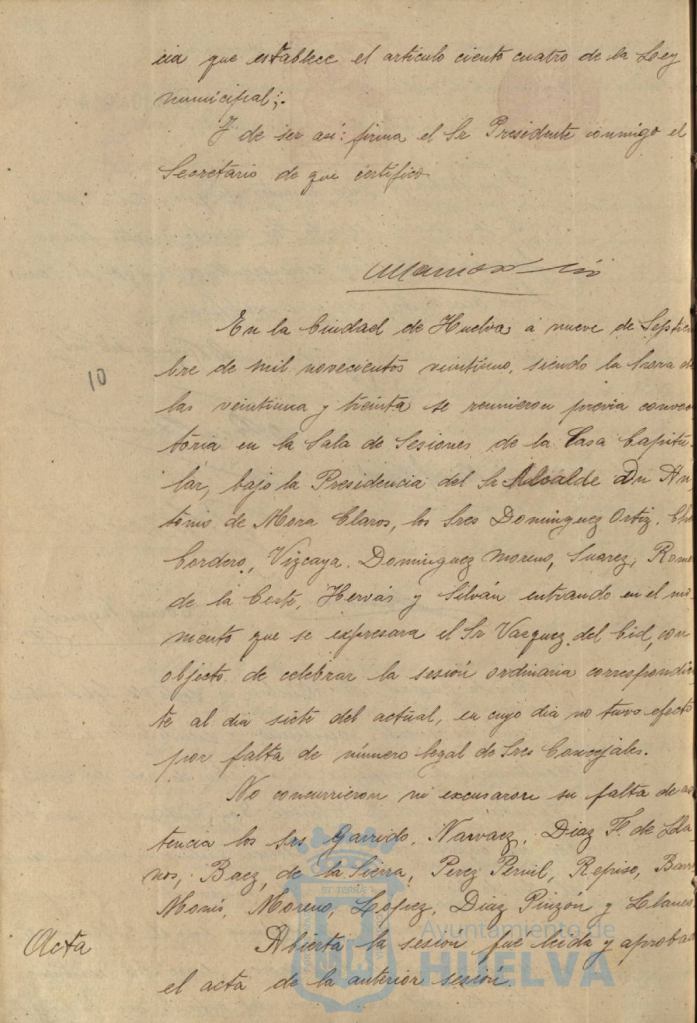 cia que establece el artículo ciento cuatro de la Ley
municipal;.
Y de ser así: firma el Sr Presidente conmigo el
Secretario de que certifico
En la Ciudad de Huelva á nueve de Septiem
bre de mil novecientos veintiuno, siendo la hora de
10
las veintiuna y treinta se reunieron previa convoca
toria en la Sala de Sesiones de la Casa Capitu-
lar, bajo la Presidencia del Sr Alcalde Dn An
tonio de Mora Claros, los Sres Dominguez Ortiz,
Cordero, Vizcaya, Dominguez Moreno, Suarez, Rome
de la Corte, Hervás y Silván entrando en el mo
mento que se expresara el Sr Vazquez del Cid, con
objeto de celebrar la sesión ordinaria correspondien
te al dia siete del actual, en cuyo dia no tuvo efecto
por falta de número legal de Sres Concejales.
No concurrieron ni excusaron su falta de asis
tencia los Srs Garrido, Narvaez, Diaz F. de Lla
nos, Baez, de la Sierra, Perez Pernil, Repiso,
Monis, Moreno, Lopez, Diaz Pinzón y Llanes
Acta
Abierta la sesión fue leida y aprobad
el acta de la anterior sesión.
Ayuntamiento de
HUELVA